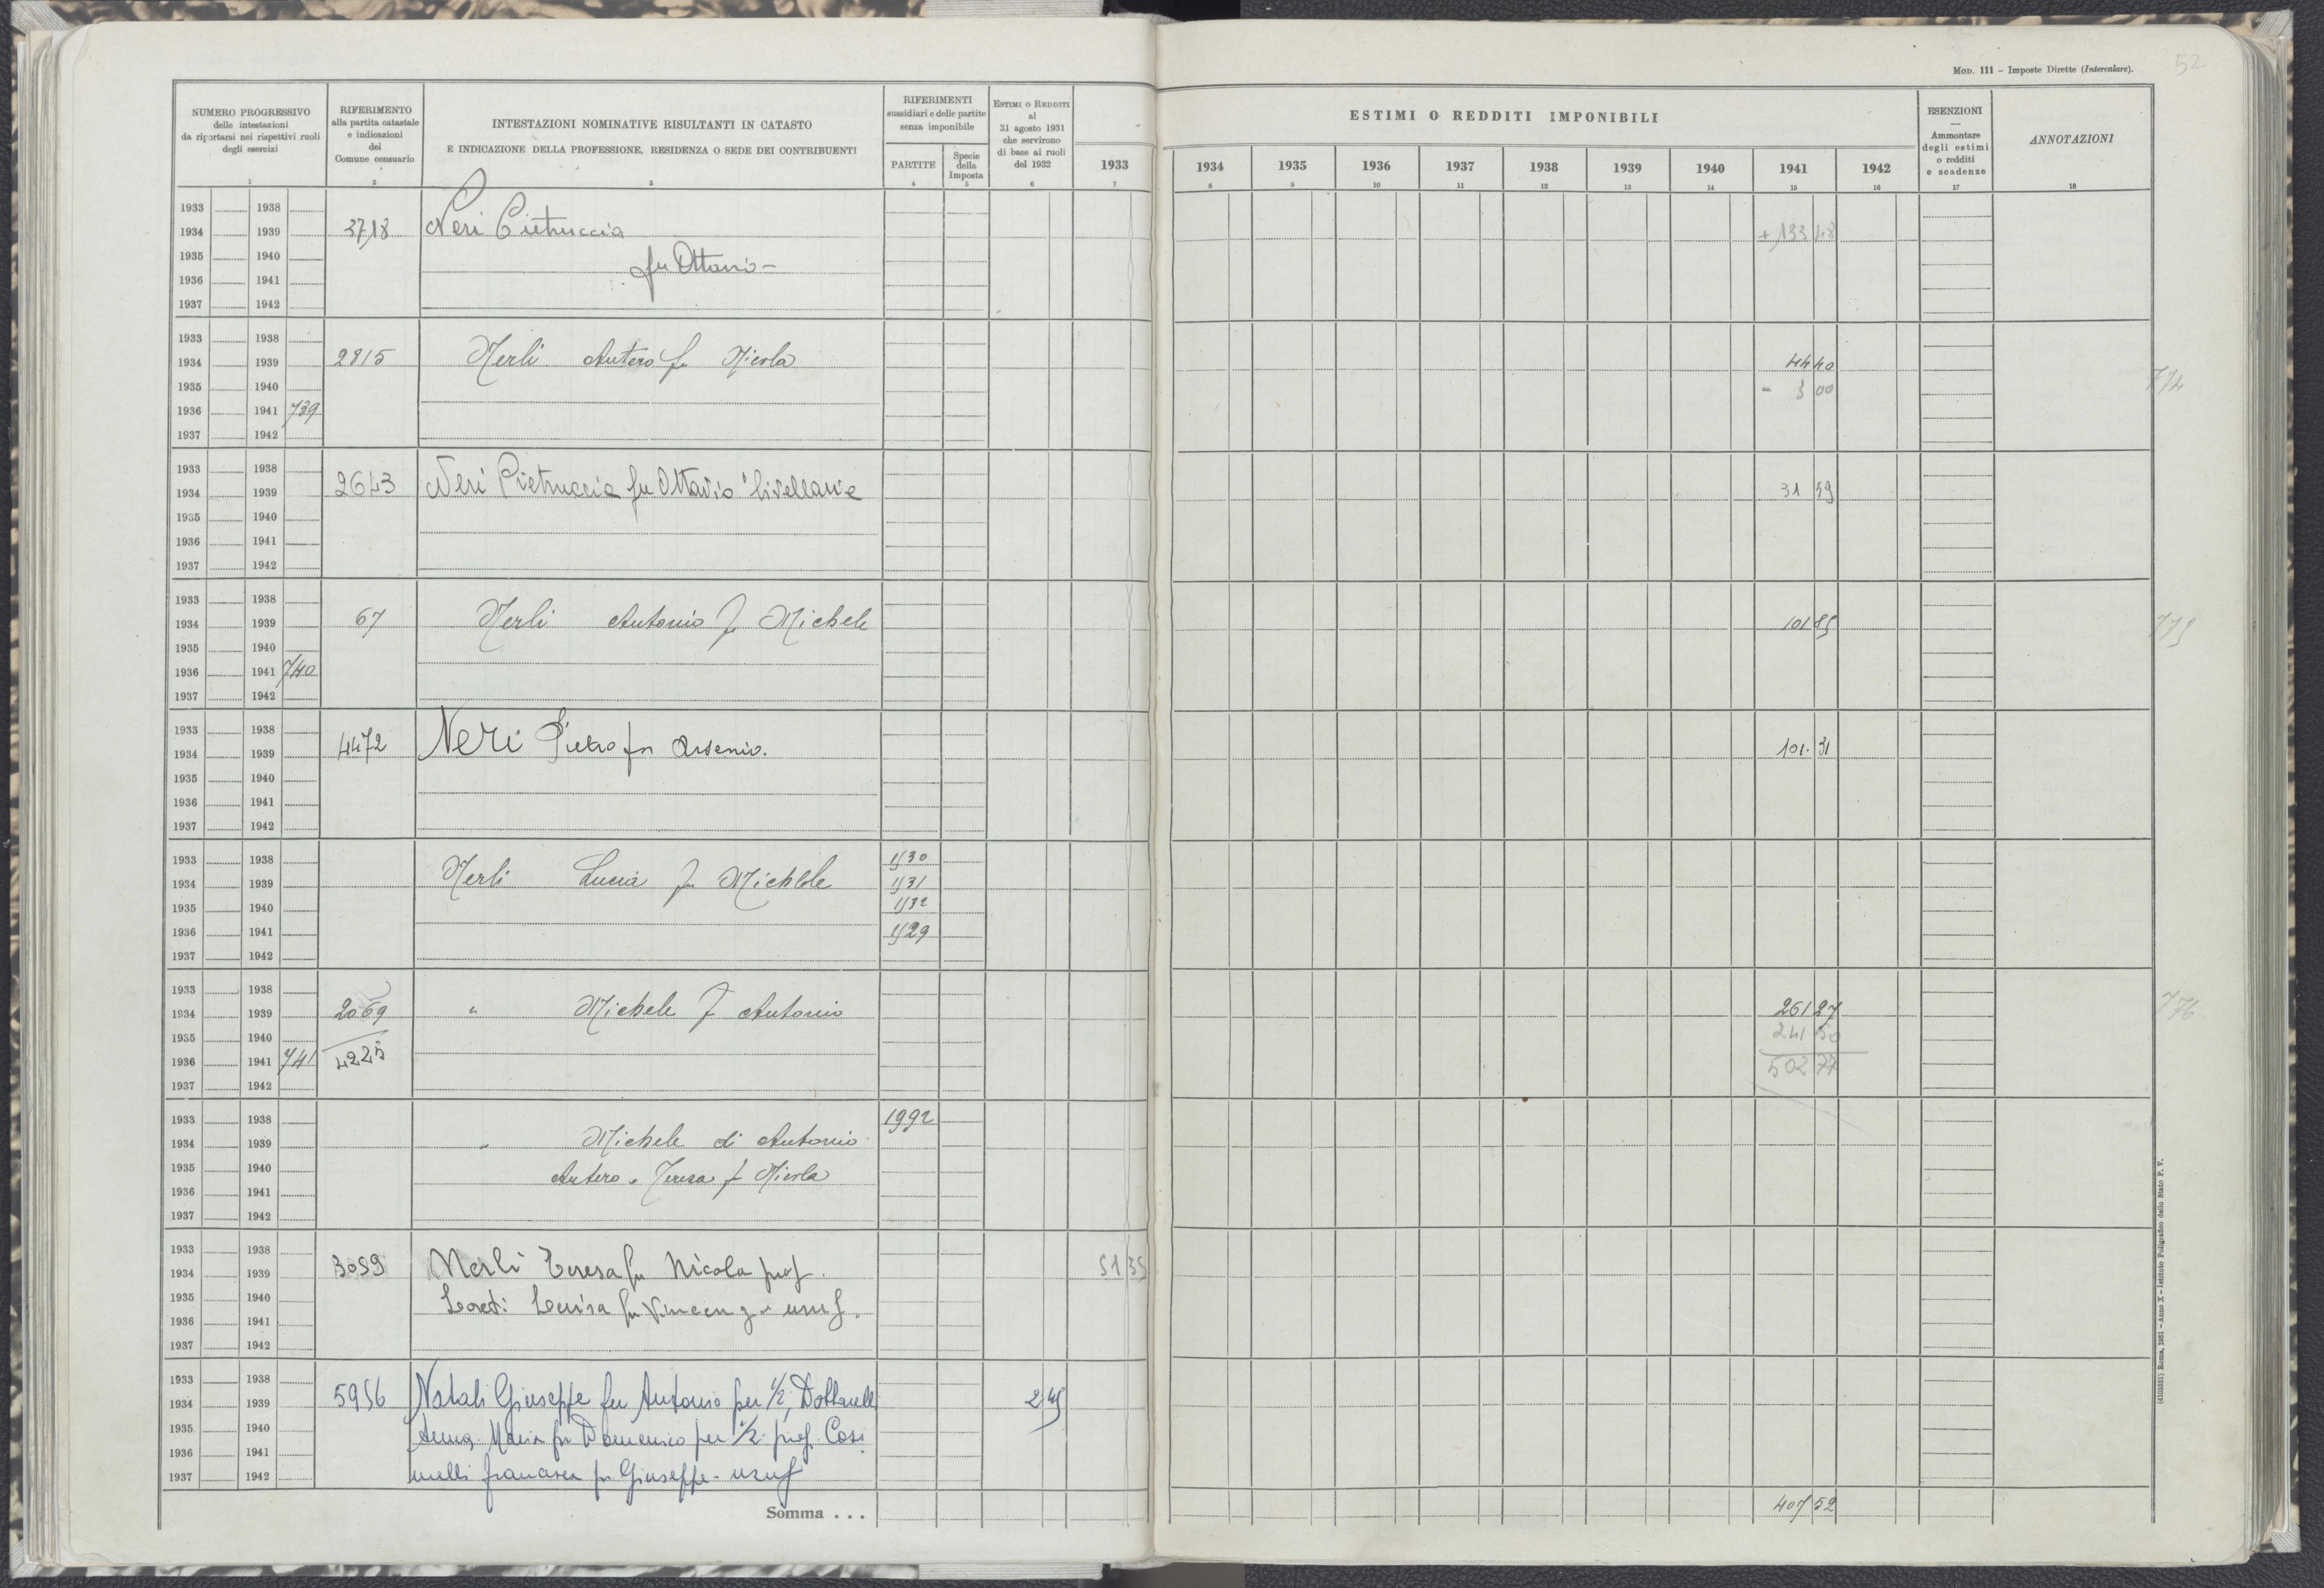 52
MOD. 111 – Imposte Dirette (Intercalare).
NUMERO PROGRESSIVO
delle intestazioni
da riportarsi nei rispettivi ruoli
degli esercizi
1
RIFERIMENTO
alla partita catastale
e indicazioni
del
Comune censuario
2
INTESTAZIONI NOMINATIVE RISULTANTI IN CATASTO
E INDICAZIONE DELLA PROFESSIONE, RESIDENZA O SEDE DEI CONTRIBUENTI
3
RIFERIMENTI
sussidiari e delle partite
senza imponibile
PARTITE
4
Specie
della
Imposta
5
ESTIMI O REDDITI
al
31 agosto 1931
che servirono
di base ai ruoli
del 1932
6
1933
7
ESTIMI O REDDITI IMPONIBILI
1934 1935 1936 1937 1938 1939 1940 1941 1942
8 9 10 11 12 13 14 15 16
ESENZIONI
—
Ammontare
degli estimi
o redditi
e scadenze
17
ANNOTAZIONI
18
1933 1938
1934 1939 3718 Neri Pietruccia + 133 48
1935 1940 fu Ottavio -
1936 1941
1937 1942
1933 1938
1934 1939 2815 Nerli Antero fu Nicola 44 40
1935 1940 - 3 00 774
1936 1941 739
1937 1942
1933 1938
1934 1939 2643 Neri Pietruccia fu Ottavio livellaria 31 59
1935 1940
1936 1941
1937 1942
1933 1938
1934 1939 67 Nerli Antonio f Michele 101 85 775
1935 1940
1936 1941 740
1937 1942
1933 1938
1934 1939 4472 Neri Pietro fu Arsenio. 101. 31
1935 1940
1936 1941
1937 1942
1933 1938 1530
1934 1939 Nerli Lucia f Michele 1531
1935 1940 1532
1936 1941 1529
1937 1942
1933 1938
1934 1939 2069 " Michele f Antonio 261 27 776
1935 1940 241 50
1936 1941 741 4225 502 77
1937 1942
1933 1938 1992
1934 1939 " Michele di Antonio
1935 1940 Antero e Teresa f Nicola
1936 1941
1937 1942
1933 1938
1934 1939 3059 Nerli Teresa fu Nicola prop. 51 35
1935 1940 Luisa fu Vincenzo usuf.
1936 1941
1937 1942
1933 1938
1934 1939 5956 Natali Giuseppe fu Antonio per 1/2; Dottarelli 2 45
1935 1940 Anna Maria fu Domenico per 1/2 prop. Cosi
1936 1941
1937 1942 nelli Francesca fu Giuseppe - usuf
Somma . . . 407 52
(4103531) Roma, 1931 – Anno X – Istituto Poligrafico dello Stato P. V.